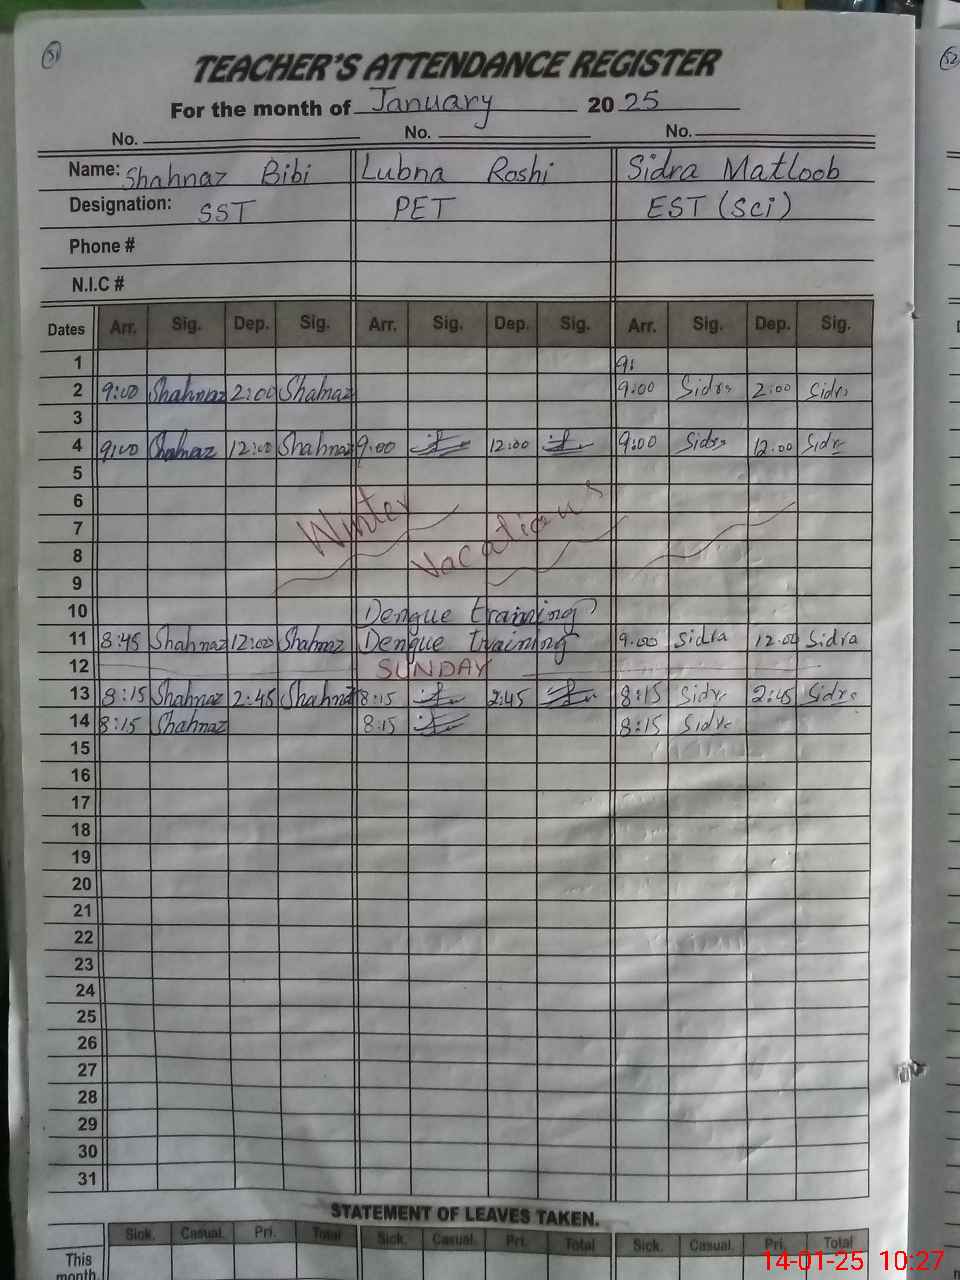 51
52
TEACHER'S ATTENDANCE REGISTER
For the month of January 2025
No. No. No.
Name: Shahnaz Bibi Lubna Roshi Sidra Matloob
Designation: SST PET EST (Sci)
Phone #
N.I.C #
Dates Arr. Sig. Dep. Sig. Arr. Sig. Dep. Sig. Arr. Sig. Dep. Sig.
1 9:
2 9:00 Shahnaz 2:00 Shahnaz 9:00 Sidra 2:00 Sidra
3
4 9:00 Shahnaz 12:00 Shahnaz 9:00 12:00 9:00 Sidra 12:00 Sidra
5
6
7 Winter Vacations
8
9
10 Dengue training
11 8:45 Shahnaz 12:00 Shahnaz Dengue training 9:00 Sidra 12:00 Sidra
12 SUNDAY
13 8:15 Shahnaz 2:45 Shahnaz 8:15 2:45 8:15 Sidra 2:45 Sidra
14 8:15 Shahnaz 8:15 8:15 Sidra
15
16
17
18
19
20
21
22
23
24
25
26
27
28
29
30
31
STATEMENT OF LEAVES TAKEN.
Sick. Casual. Pri. Total Sick. Casual. Pri. Total Sick. Casual. Pri. Total
This
month
14-01-25 10:27